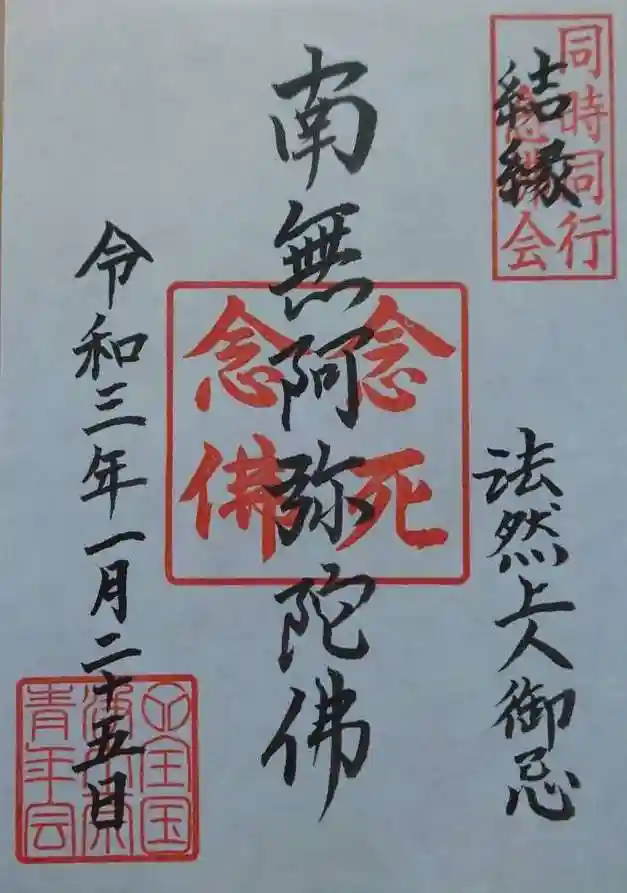 結縁
同時同行
念佛会
法然上人御忌
南無阿弥陀佛
念死
念佛
令和三年一月二十五日
全国
青年会